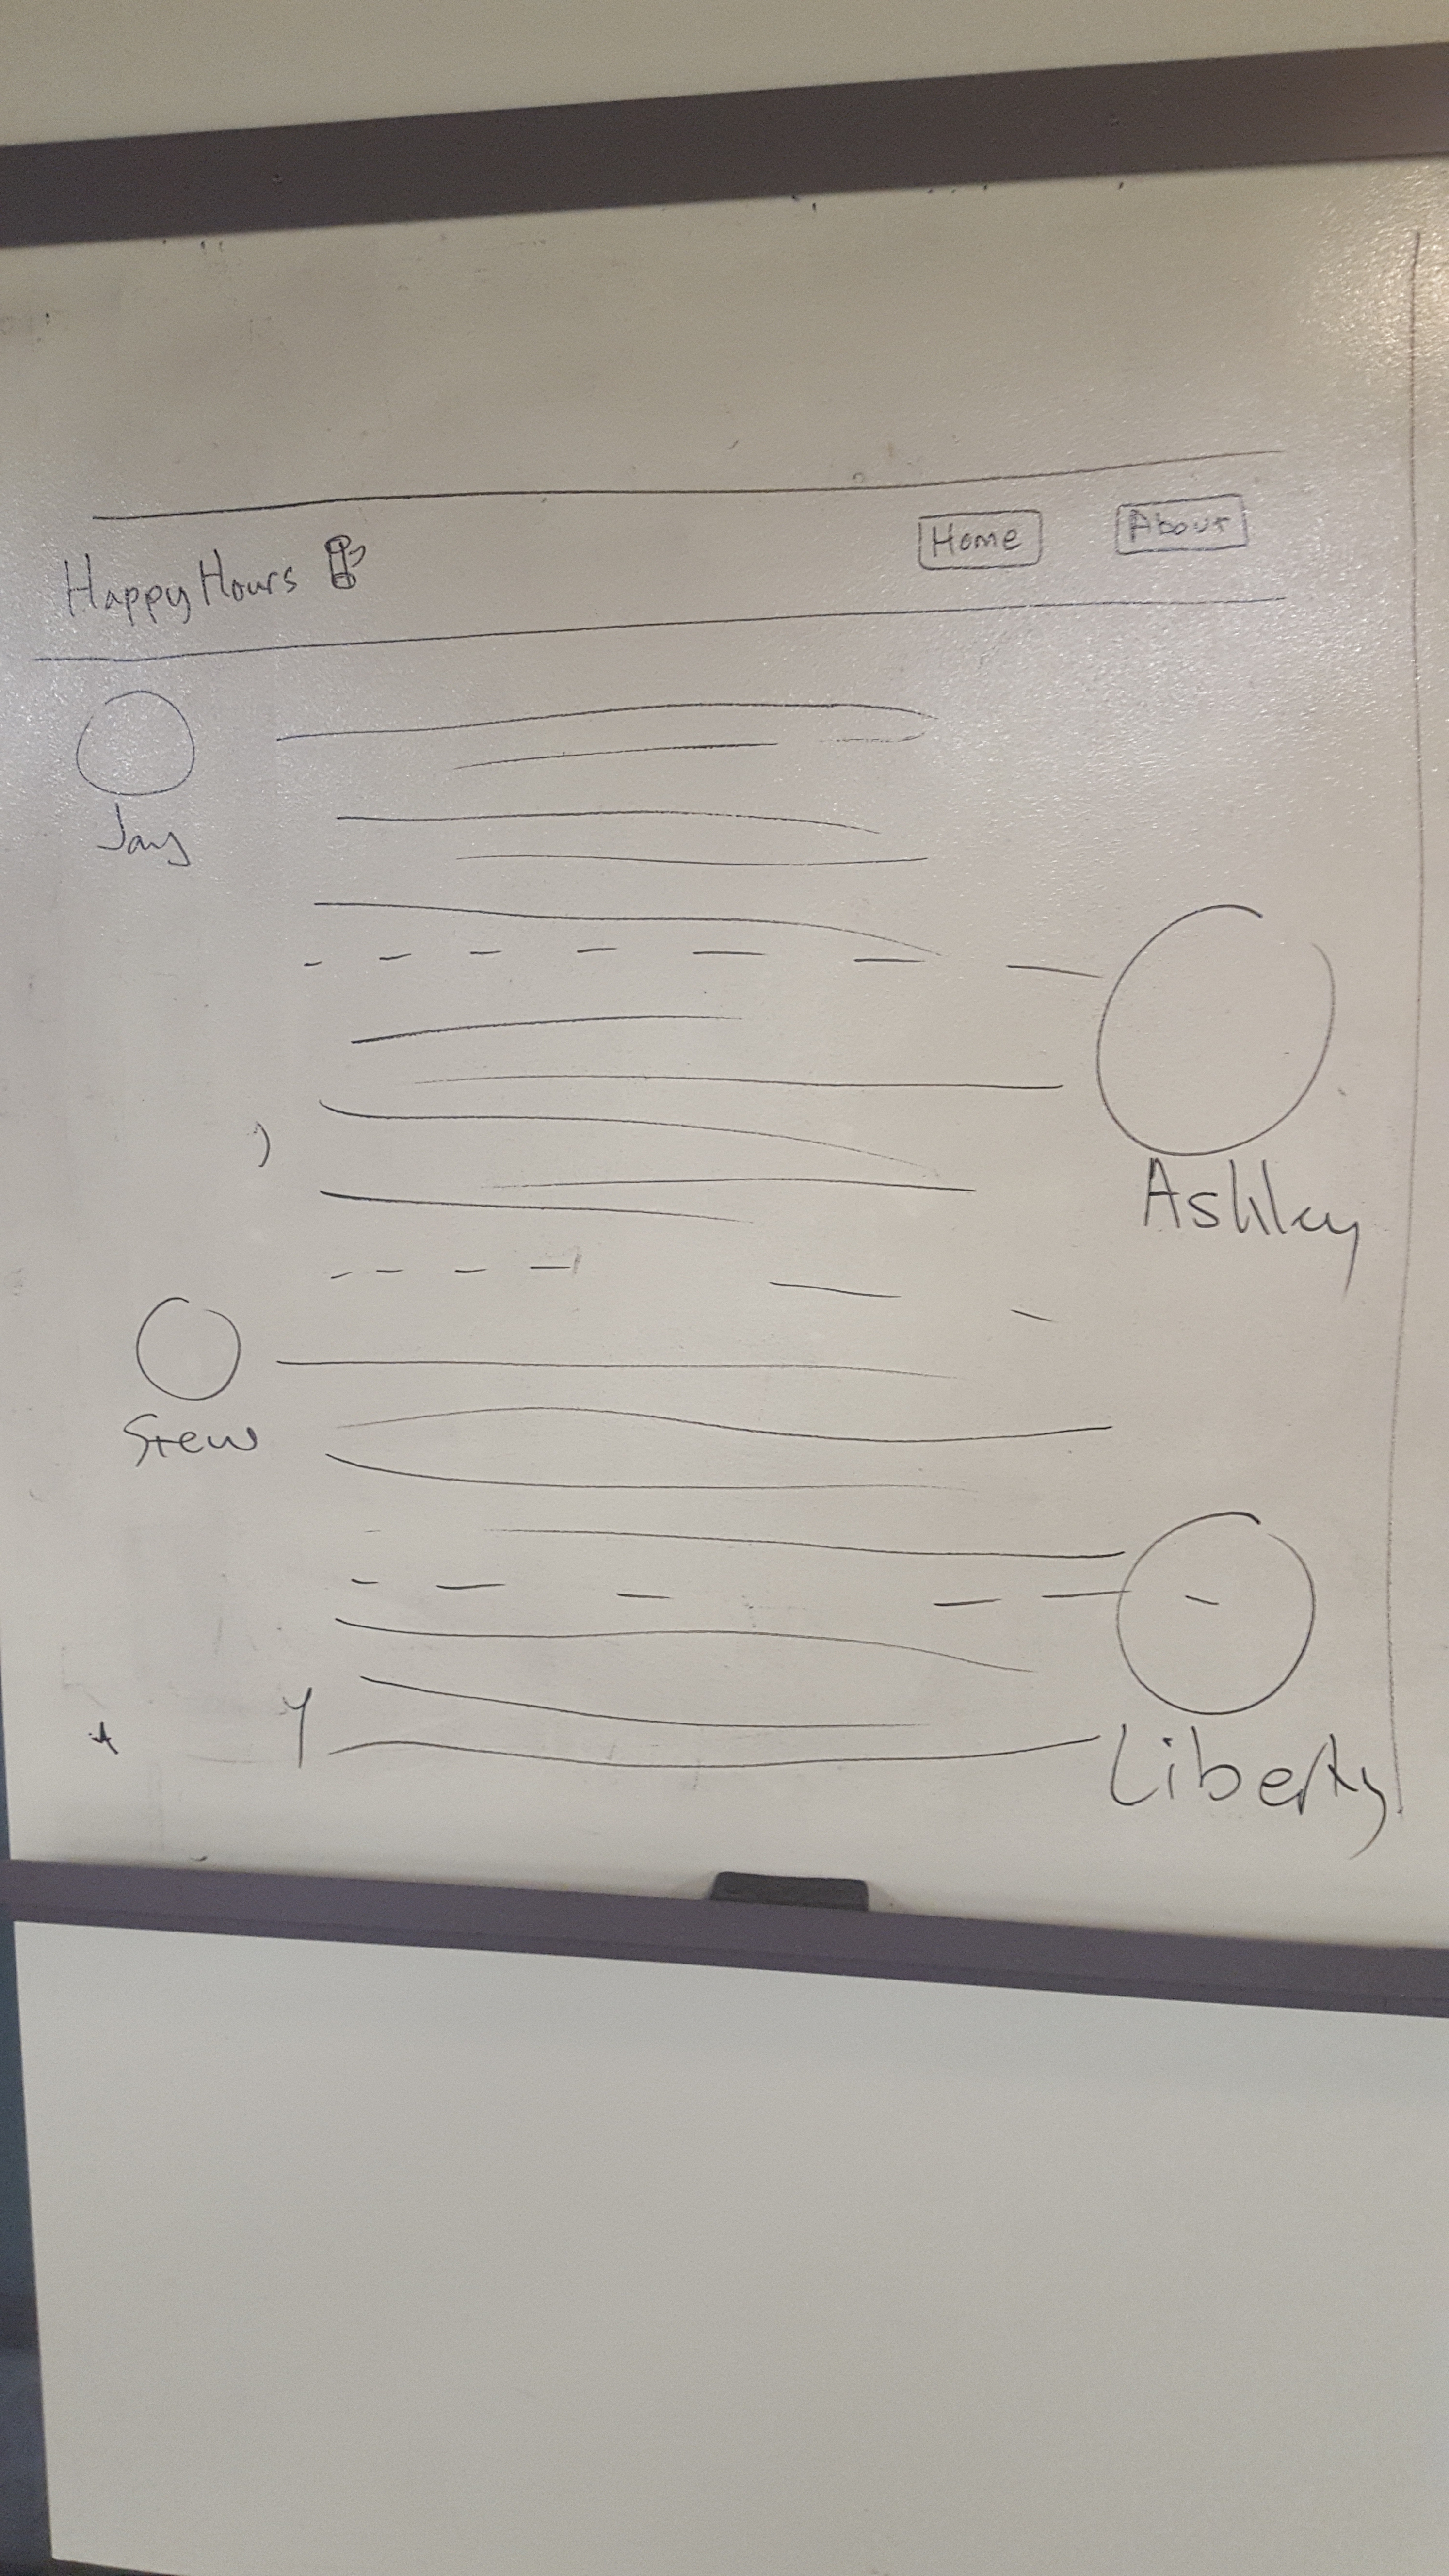 Happy Hours
Home
About
Jay
Ashley
Stew
Liberty